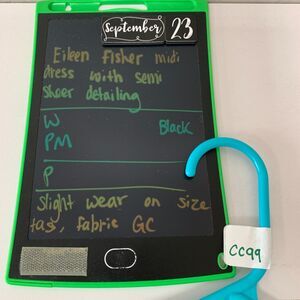 September 23
Eileen Fisher midi
dress with semi
sheer detailing
W Black
PM
P
Slight wear on size
tag, fabric GC
CC99